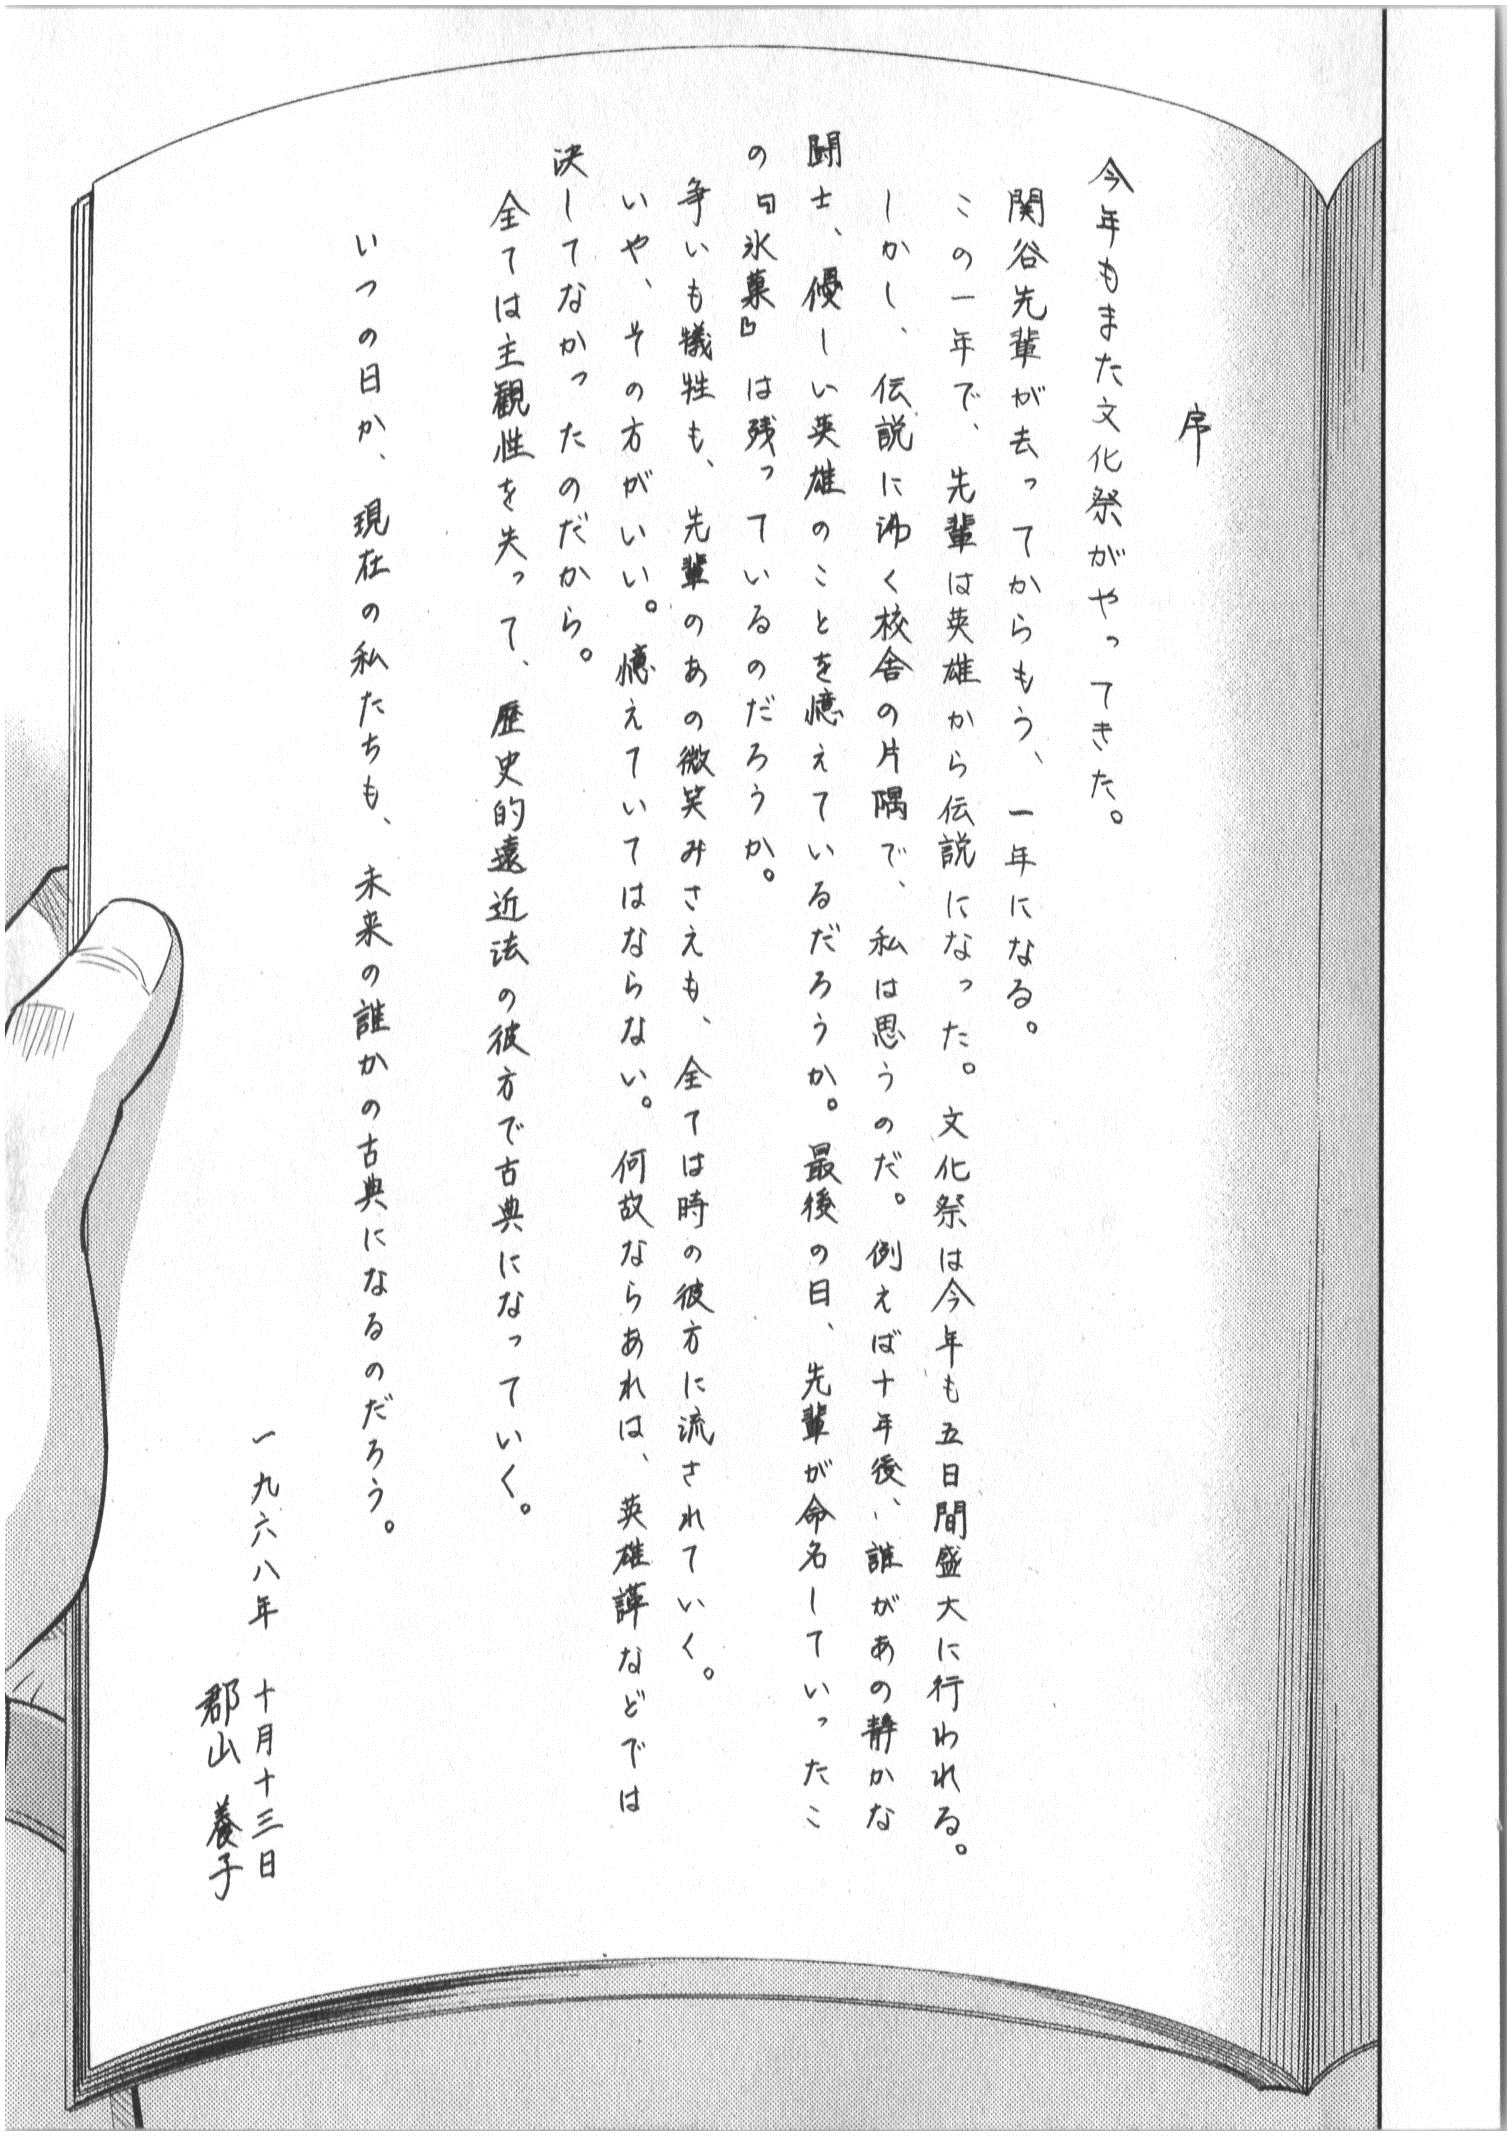 序
今年もまた文化祭がやってきた。
関谷先輩が去ってからもう、一年になる。
この一年で、先輩は英雄から伝説になった。文化祭は今年も五日間盛大に行われる。
しかし、伝説に沸く校舎の片隅で、私は思うのだ。例えば十年後、誰があの静かな
闘士、優しい英雄のことを憶えているだろうか。最後の日、先輩が命名していったこ
の『氷菓』は残っているのだろうか。
争いも犠牲も、先輩のあの微笑みさえも、全ては時の彼方に流されていく。
いや、その方がいい。憶えていてはならない。何故ならあれは、英雄譚などでは
決してなかったのだから。
全ては主観性を失って、歴史的遠近法の彼方で古典になっていく。
いつの日か、現在の私たちも、未来の誰かの古典になるのだろう。
一九六八年 十月十三日
郡山 養子